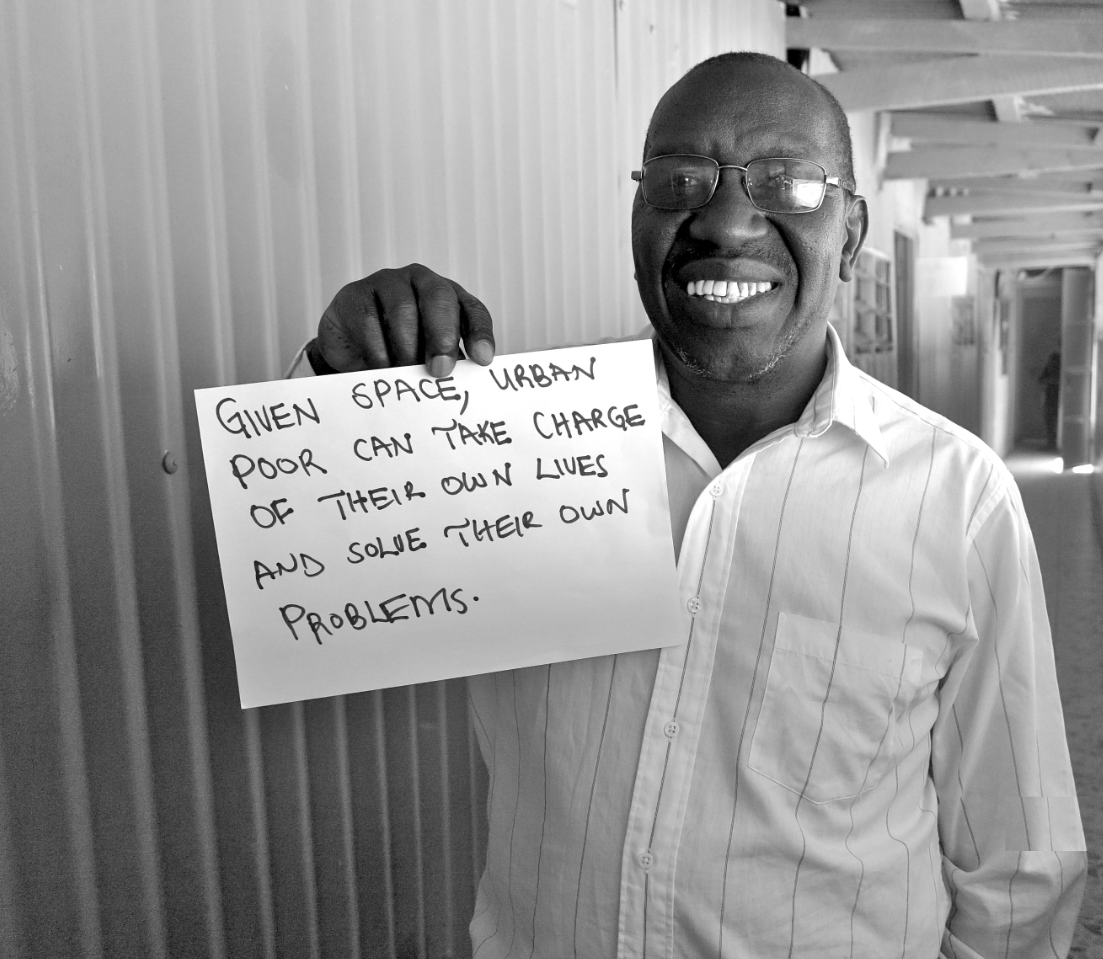 GIVEN SPACE, URBAN
POOR CAN TAKE CHARGE
OF THEIR OWN LIVES
AND SOLVE THEIR OWN
PROBLEMS.